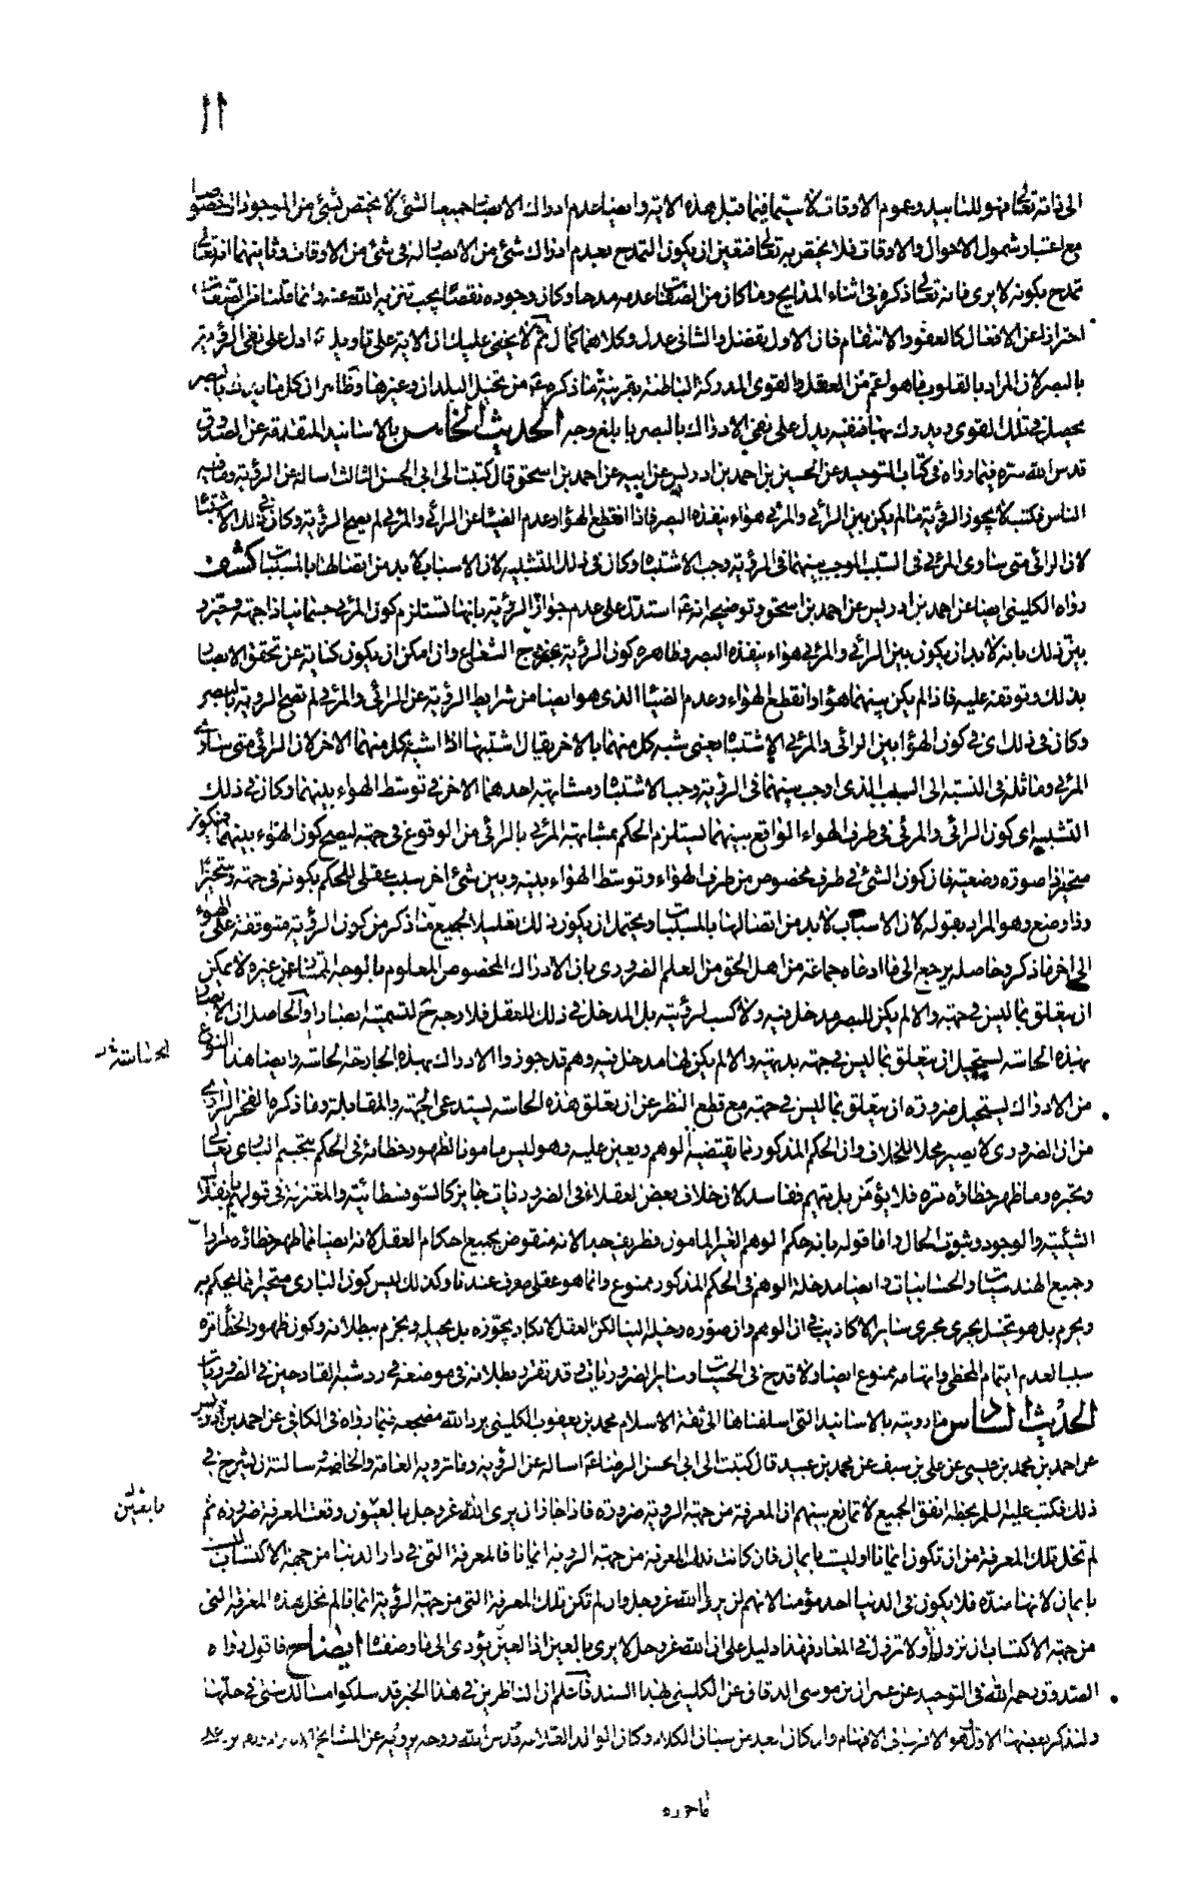 ١١
الى ذاته تعالى فهو للتابيد وعموم الاوقات لا سيما فيما قبل هذه الاية وايضا عدم ادراك الابصار جميعا لشئ لا يختص بشئ من الموجودات خصوصا
مع اعتبار شمول الاحوال والاوقات فلا يختص به تعالى فتعين ان يكون التمدح بعدم ادراك شئ من الابصار له فى شئ من الاوقات وثانيهما انه تعالى
تمدح بكونه لا يرى فانه تعالى ذكره فى اثناء المدايح وما كان من الصفات عدمه مدحا وكان وجوده نقصا يجب تنزيه الله عنه وانما قلنا من الصفات
احترازا عن الافعال كالعفو والانتقام فان الاول تفضل والثانى عدل وكلاهما كمال ثم لا يخفى عليك ان الاية على تاويله ع ادل على نفى الرؤية
بالبصر لان المراد بالقلوب ما هو اعم من العقل والقوى المدركة الباطنة بقرينة ما ذكره ع من تخيل البلدان وغيرها وظاهر ان كل ما يدرك بالبصر
يحصل فى تلك القوى ويدرك بها فنفيه يدل على نفى الادراك بالبصر بابلغ وجه الحديث الخامس بالاسانيد المتقدمة عن الصدوق
قدس الله سره فيما رواه فى كتاب التوحيد عن الحسين بن احمد بن ادريس عن ابيه عن احمد بن اسحق قال كتبت الى ابى الحسن الثالث اساله عن الرؤية وما فيه
الناس فكتب لا يجوز الرؤية ما لم يكن بين الرائى والمرئى هواء ينفذه البصر فاذا انقطع الهواء وعدم الضياء عن الرائى والمرئى لم يصح الرؤية وكان فى ذلك الاشتباه
لان الرائى متى ساوى المرئى فى السبب الموجب بينهما فى الرؤية وجب الاشتباه وكان فى ذلك التشبيه لان الاسباب لا بد من اتصالها بالمسببات كشف
رواه الكلينى ايضا عن احمد بن ادريس عن احمد بن اسحق وتوضيحه انه ع استدل على عدم جواز الرؤية بانها تستلزم كون المرئى جسمانيا ذا جهة وحيز و
بين ذلك بانه لا بد ان يكون بين الرائى والمرئى هواء ينفذه البصر وظاهره كون الرؤية بخروج الشعاع وان امكن ان يكون كناية عن تحقق الابصار
بذلك وتوقفه عليه فاذا لم يكن بينهما هواء وانقطع الهواء وعدم الضياء الذى هو ايضا من شرايط الرؤية عن الرائى والمرئى لم تصح الروية بالبصر
وكان فى ذلك اى فى كون الهواء بين الرائى والمرئى الاشتباه يعنى شبه كل منهما بالاخر يقال اشتبها اذا اشبه كل منهما الاخر لان الرائى متى ساوى
المرئى وماثله فى النسبة الى السبب الذى اوجب بينهما فى الرؤية وجب الاشتباه ومشابهة احدهما الاخر فى توسط الهواء بينهما وكان فى ذلك
التشبيه اى كون الرائى والمرئى فى طرفى الهواء الواقع بينهما يستلزم الحكم بمشابهة المرئى بالرائى من الوقوع فى جهة ليصح كون الهواء بينهما فيكون
متحيزا ذا صورة وضعية فان كون الشئ فى طرف مخصوص من طرفى الهواء وتوسط الهواء بينه وبين شئ اخر سبب عقلى للحكم بكونه فى جهة ومتحيزا
وذا وضع وهو المراد بقوله لان الاسباب لا بد من اتصالها بالمسببات ويحتمل ان يكون ذلك تعليلا لجميع ما ذكر من كون الرؤية متوقفة على الهواء
الى اخر ما ذكر وحاصله يرجع الى ما ادعاه جماعة من اهل الحق من العلم الضرورى بان الادراك المخصوص المعلوم بالوجه الممتاز عن غيره لا يمكن
ان يتعلق بما ليس فى جهة والا لم يكن للبصر مدخل فيه ولا كسب لرؤيته بل المدخل فى ذلك للعقل فلا وجه ح لتسميته ابصارا والحاصل ان الابصار
بهذه الحاسة يستحيل ان يتعلق بما ليس فى جهة بديهة والا لم يكن لها مدخل فيه وهم قد جوزوا الادراك بهذه الجارحة الحاسة وايضا هذا النوع
من الادراك يستحيل ضرورة ان يتعلق بما ليس فى جهة مع قطع النظر عن ان تعلق هذه الحاسة يستدعى الجهة والمقابلة وما ذكره الفخر الرازى
من ان الضرورى لا يصير محلا للخلاف وان الحكم المذكور مما يقتضيه الوهم ويعين عليه وهو ليس مامونا لظهور خطائه فى الحكم بتجسم البارى تعالى
وتحيزه وما ظهر خطاؤه مرة فلا يؤمن بل يتهم ففاسد لان خلاف بعض العقلاء فى الضروريات جايز كالسوفسطائية والمعتزلة فى قولهم بانفكاك
الشيئية والوجود وثبوت الحال واما قوله بانه حكم الوهم الغير المامون فطريف جدا لانه منقوض بجميع احكام العقل لانه ايضا مما ظهر خطاؤه مرارا
وجميع الهندسيات والحسابيات وايضا مدخلية الوهم فى الحكم المذكور ممنوع وانما هو عقلى صرف عندنا وكذلك ليس كون البارى متحيزا مما يحكم به
ويجزم بل هو تخيل يجرى مجرى ساير الاكاذيب فى ان الوهم وان صوره وخيله الينا لكن العقل لا يكاد يجوزه بل يحيله ويجزم ببطلانه وكون ظهور الخطأ مرة
سببا لعدم ايتمام المخطى واتهامه ممنوع ايضا ولا قدح فى الحسيات وساير الضروريات وقد تقرر بطلانه فى موضعه فى رد شبه القادحين فى الضروريات
الحديث السادس ما رويته بالاسانيد التى اسلفناها الى ثقة الاسلام محمد بن يعقوب الكلينى برد الله مضجعه فيما رواه فى الكافى عن احمد بن ادريس
عن احمد بن محمد بن عيسى عن على بن سيف عن محمد بن عبيد قال كتبت الى ابى الحسن الرضا ع اساله عن الرؤية وما ترويه العامة والخاصة وسالته ان يشرح لى
ذلك فكتب عليه السلم بخطه اتفق الجميع لا تمانع بينهم ان المعرفة من جهة الروية ضرورة فاذا جاز ان يرى الله عز وجل بالعين وقعت المعرفة ضرورة ثم
لم تخل تلك المعرفة من ان تكون ايمانا او ليست بايمان فان كانت تلك المعرفة من جهة الروية ايمانا فالمعرفة التى فى دار الدنيا من جهة الاكتساب ليست
بايمان لانها ضده فلا يكون فى الدنيا احد مؤمنا لانهم لن يروا الله عز وجل وان لم تكن تلك المعرفة التى من جهة الرؤية ايمانا لم تخل هذه المعرفة التى
من جهة الاكتساب ان تزول او لا تزول فى المعاد فهذا دليل على ان الله عز وجل لا يرى بالعين اذ العين يؤدى الى ما وصفناه ايضاح فاقول رواه
الصدوق رحمه الله فى التوحيد عن عمران بن موسى الدقاق عن الكلينى بهذا السند فاعلم ان الناظرين فى هذا الخبر قد سلكوا مسالك شتى فى حلها
ولنذكر بعضها الاول هو الاقرب الى الافهام وان كان ابعد عن سياق الكلام وكان الوالد العلامة قدس الله روحه يرويه عن المشايخ